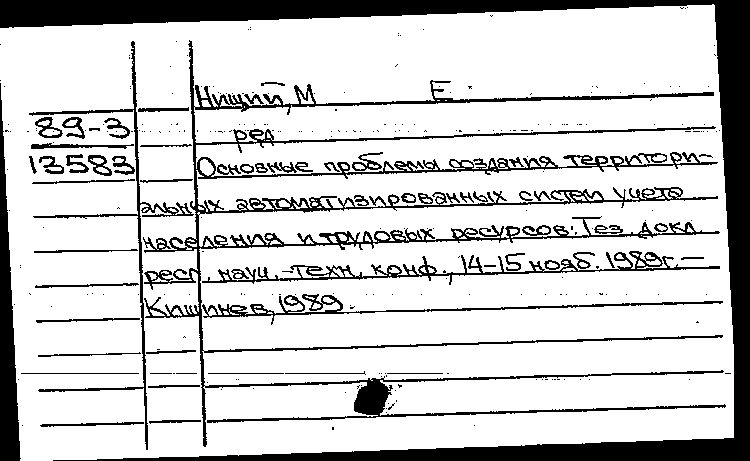 Нищий, М Е
89-3 ред
13583 Основные проблемы создания территори-
альных автоматизированных систем учета
населения и трудовых ресурсов: Тез. докл.
респ. науч.-техн. конф., 14-15 нояб. 1989г.-
Кишинев, 1989.